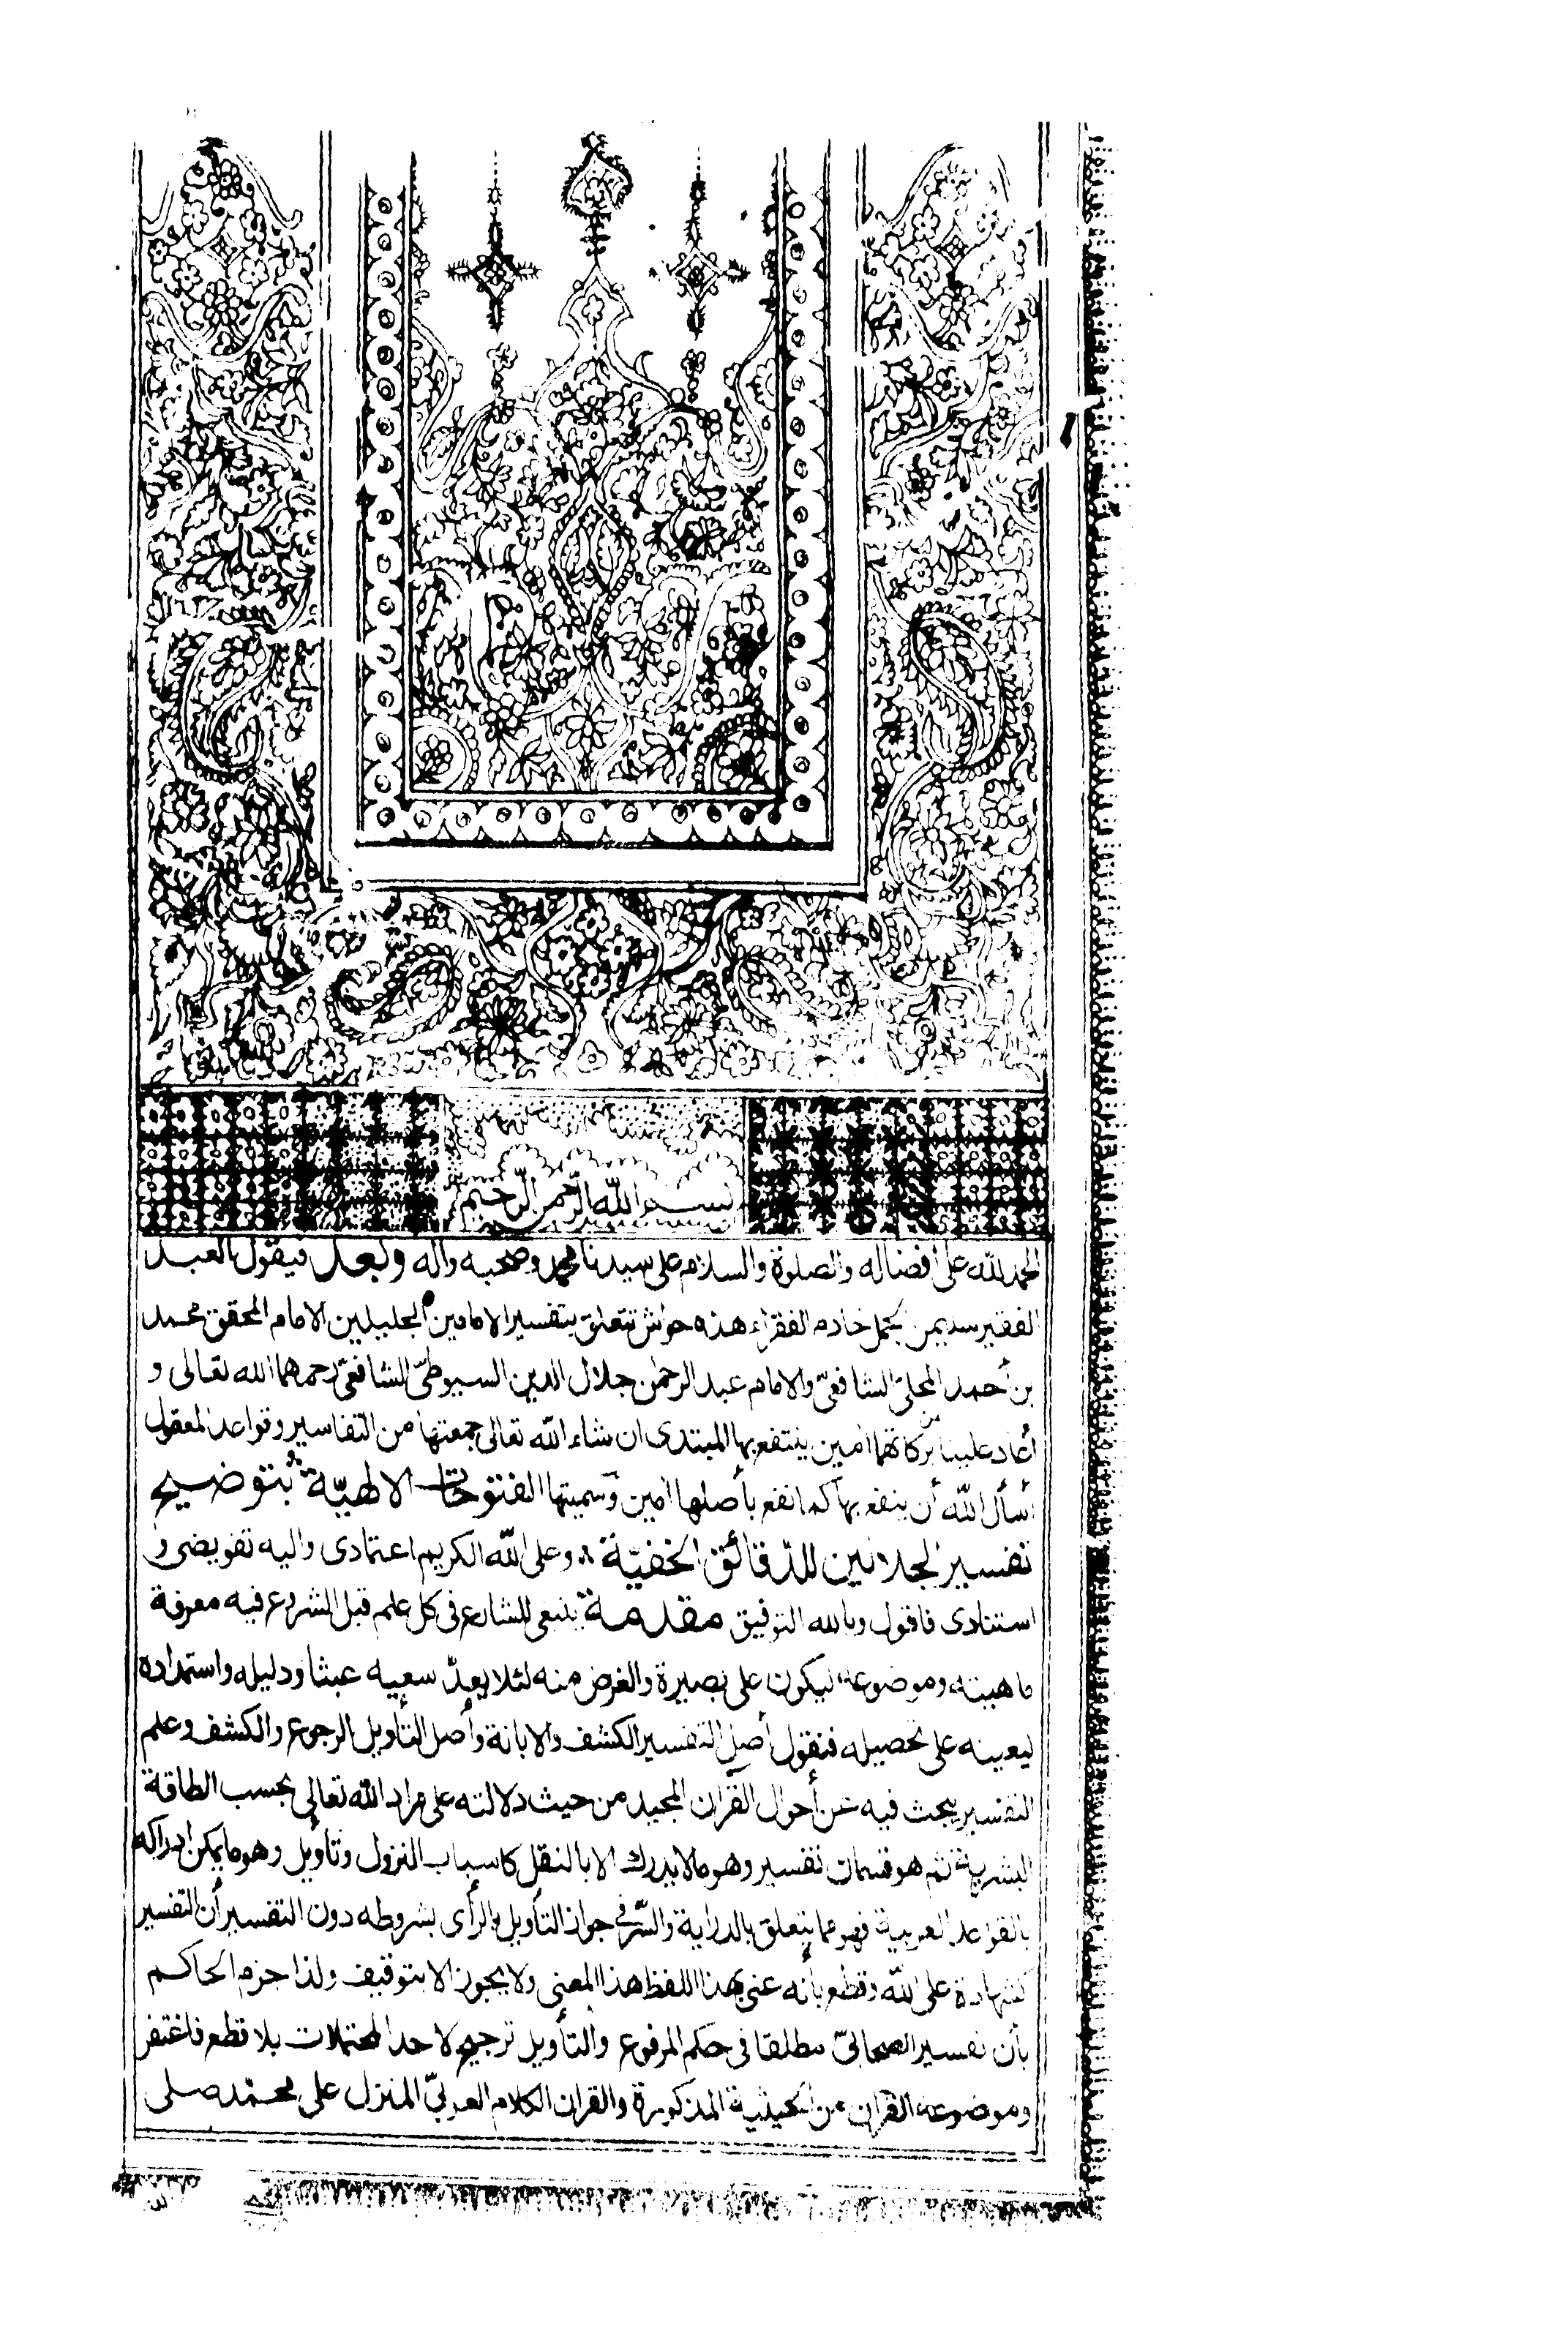 بسم الله الرحمن الرحيم
الحمد لله على افضاله والصلوة والسلام على سيدنا محمد وصحبه واله وبعد فيقول العبد
الفقير سليمن الجمل خادم الفقراء هذه حواش تتعلق بتفسير الامامين الجليلين الامام المحقق محمد
بن أحمد المحلىّ الشافعىّ والامام عبد الرحمن جلال الدين السيوطىّ الشافعىّ رحمهما الله تعالى و
أعاد علينا من بركاتهما امين ينتفع بها المبتدى ان شاء الله تعالى جمعتها من التفاسير وقواعد المعقول
أسأل الله أن ينفع بها كما نفع بأصلها امين وسميتها الفتوحات الالهيّة بتوضيح
تفسير الجلالين للدّقائق الخفيّة وعلى الله الكريم اعتمادى واليه تفويضى و
استنادى فاقول وبالله التوفيق مقدمة ينبغى للشارع فى كل علم قبل الشروع فيه معرفة
ماهيته وموضوعه ليكون على بصيرة والغرض منه لئلا يعدّ سعيه عبثا ودليله واستمداده
ليعينه على تحصيله فنقول أصل التفسير الكشف والابانة وأصل التأويل الرجوع والكشف وعلم
التفسير يبحث فيه عن أحوال القران المجيد من حيث دلالته على مراد الله تعالى بحسب الطاقة
البشرية ثم هو قسمان تفسير وهو مالا يدرك الا بالنقل كاسباب النزول وتأويل وهو ما يمكن ادراكه
بالقواعد العربية فهو مما يتعلق بالدراية والسّر فى جواز التأويل بالرأى بشروطه دون التفسير أن التفسير
كشهادة على الله وقطع بأنه عنى بهذا اللفظ هذا المعنى ولا يجوز الا بتوقيف ولذا جزم الحاكم
بأن تفسير الصحابىّ مطلقا فى حكم المرفوع والتأويل ترجيح لاحد المحتملات بلا قطع فاغتفر
وموضوعه القران من الحيثية المذكورة والقران الكلام العربىّ المنزل على محمّد صلى